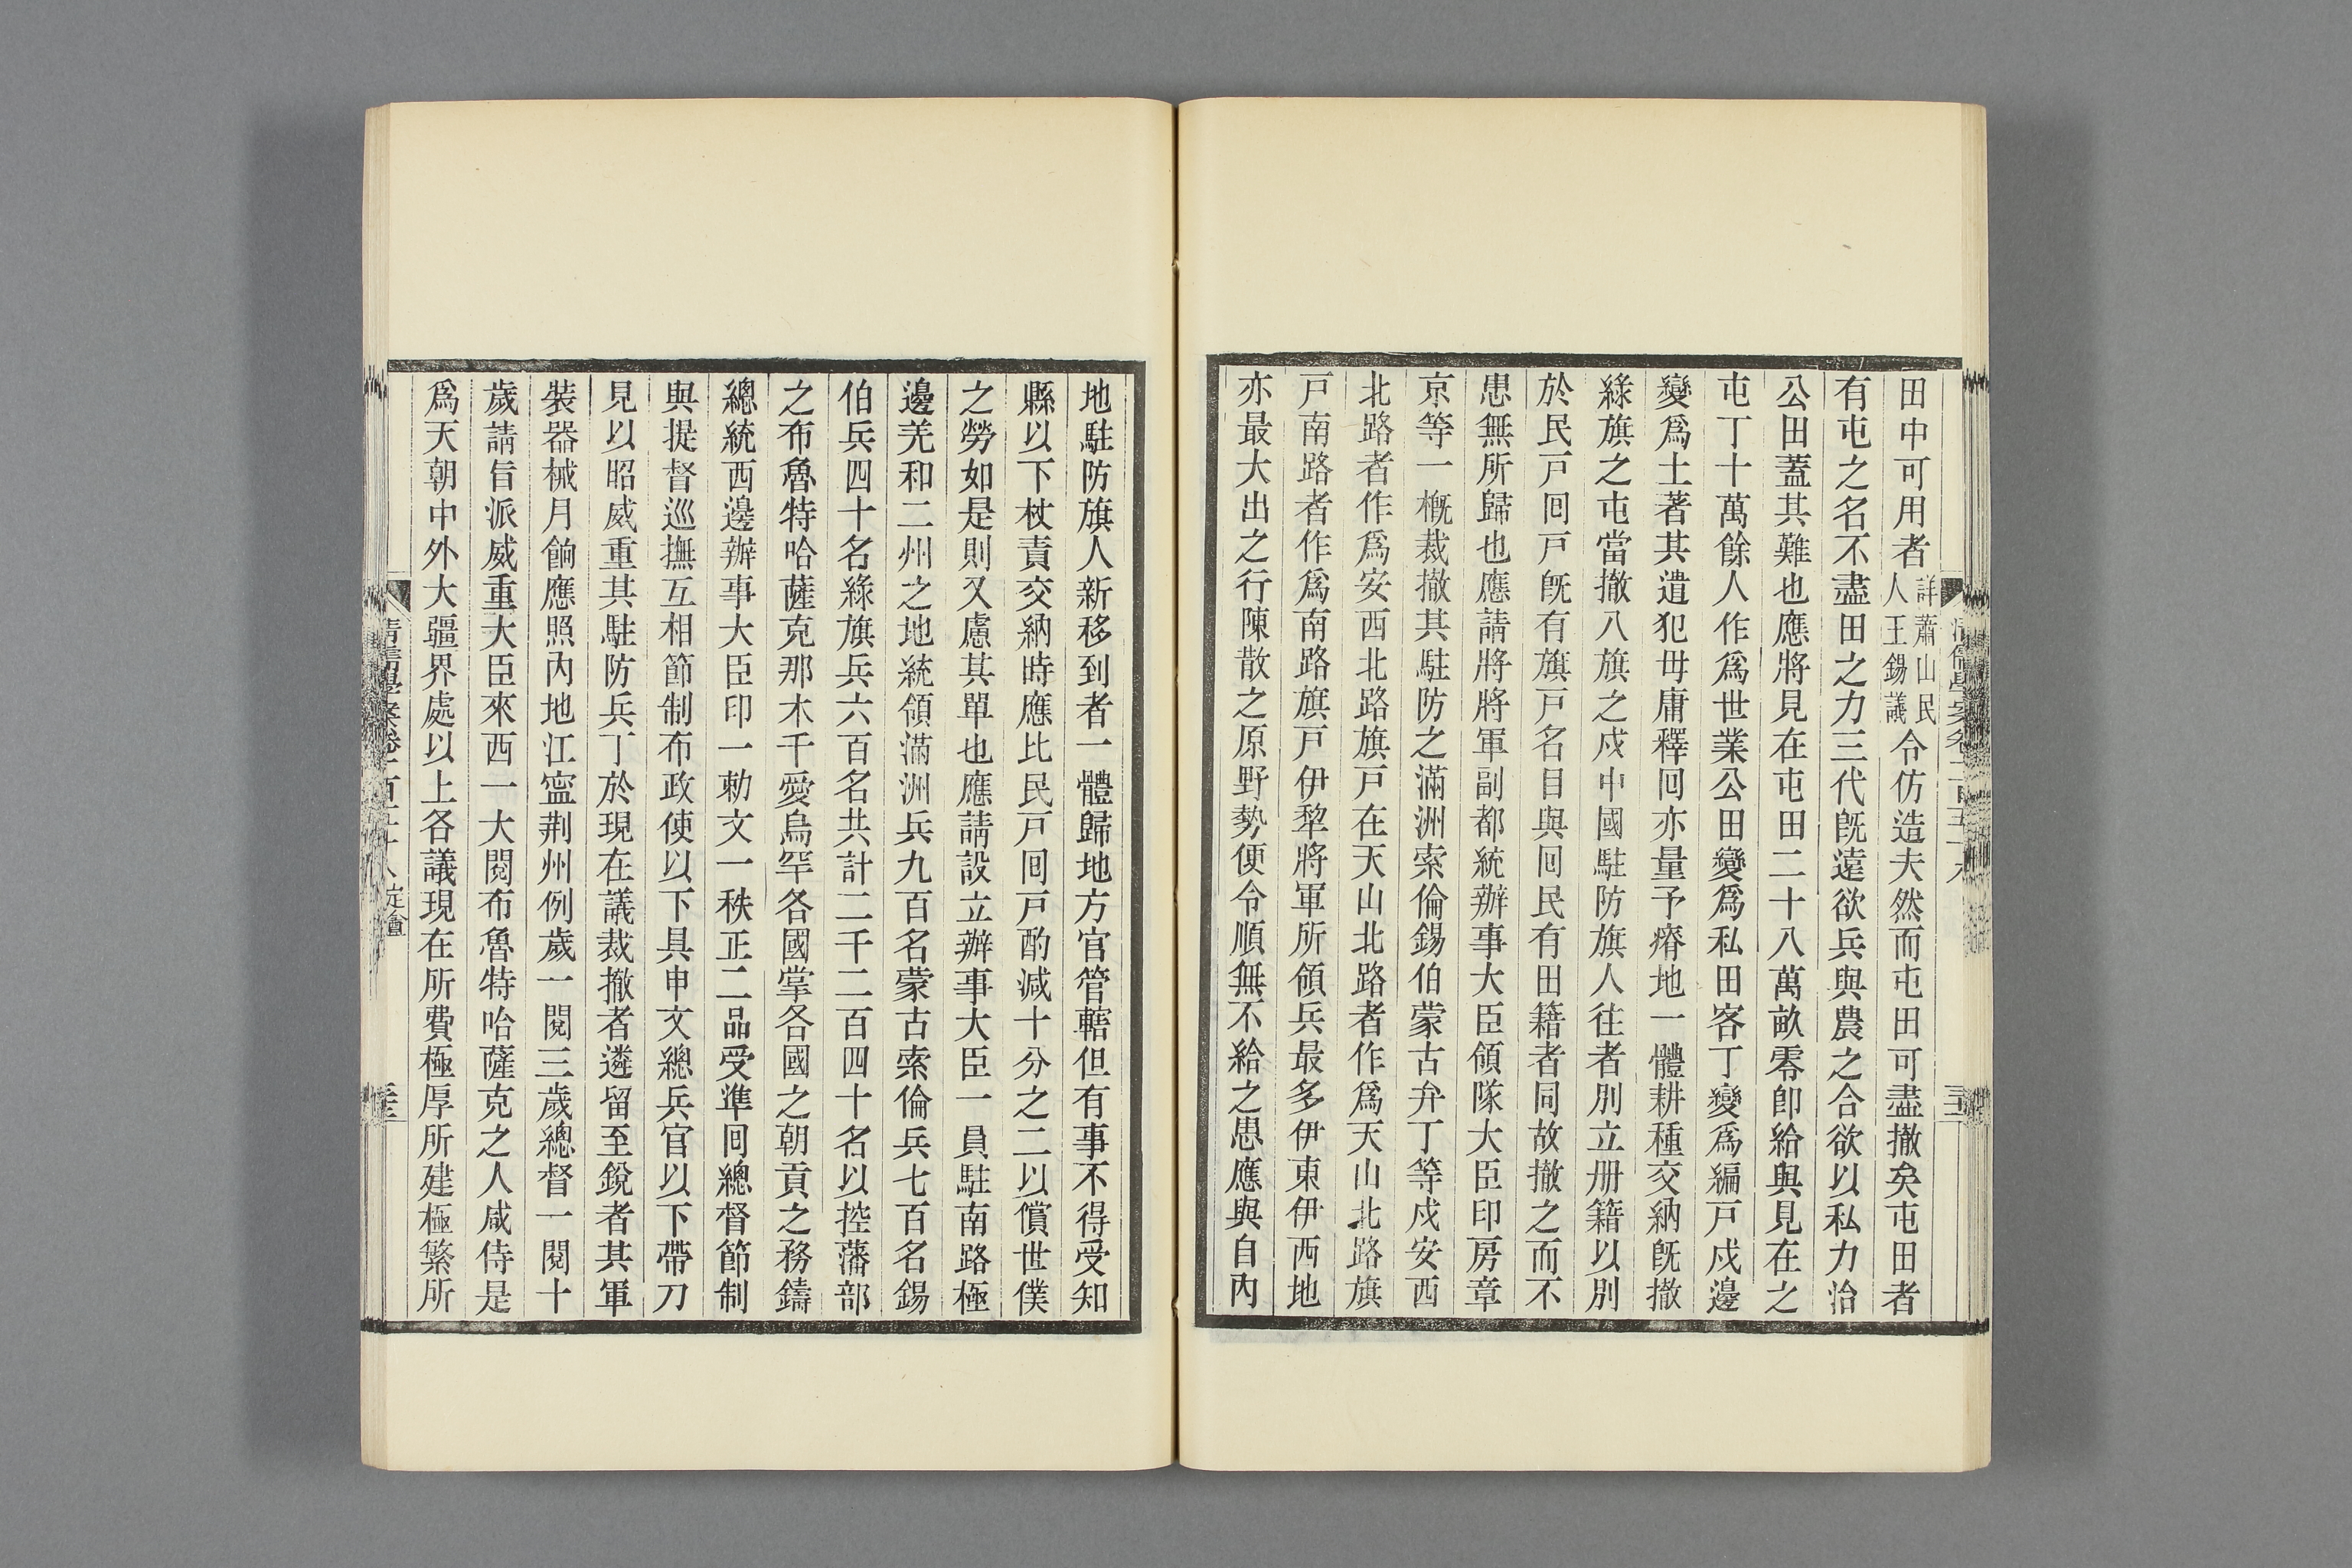 田中可用者詳蕭山民人王錫議令仿造夫然而屯田可盡撤矣屯田者
有屯之名不盡田之力三代旣遠欲兵與農之合欲以私力治
公田蓋其難也應將見在屯田二十八萬畝零卽給與見在之
屯丁十萬餘人作爲世業公田變爲私田客丁變爲編戸戍邊
變爲土著其遣犯毋庸釋回亦量予瘠地一體耕種交納旣撤
綠旗之屯當撤八旗之戍中國駐防旗人往者別立册籍以別
於民戸囘戸旣有旗戸名目與囘民有田籍者同故撤之而不
患無所歸也應請將將軍副都統辦事大臣領隊大臣印房章
京等一概裁撤其駐防之滿洲索倫錫伯蒙古弁丁等戍安西
北路者作爲安西北路旗戸在天山北路者作爲天山北路旗
戸南路者作爲南路旗戸伊犂將軍所領兵最多伊東伊西地
亦最大出之行陳散之原野勢便令順無不給之患應與自內
地駐防旗人新移到者一體歸地方官管轄但有事不得受知
縣以下杖責交納時應比民戸囘戸酌減十分之二以償世僕
之勞如是則又慮其單也應請設立辦事大臣一員駐南路極
邊羌和二州之地統領滿洲兵九百名蒙古索倫兵七百名錫
伯兵四十名綠旗兵六百名共計二千二百四十名以控藩部
之布魯特哈薩克那木千愛烏罕各國掌各國之朝貢之務鑄
總統西邊辦事大臣印一勅文一秩正二品受準囘總督節制
與提督巡撫互相節制布政使以下具申文總兵官以下帶刀
見以昭威重其駐防兵丁於現在議裁撤者遴留至銳者其軍
裝器械月餉應照內地江寧荆州例歲一閱三歲總督一閱十
歲請旨派威重大臣來西一大閱布魯特哈薩克之人咸侍是
爲天朝中外大疆界處以上各議現在所費極厚所建極繁所